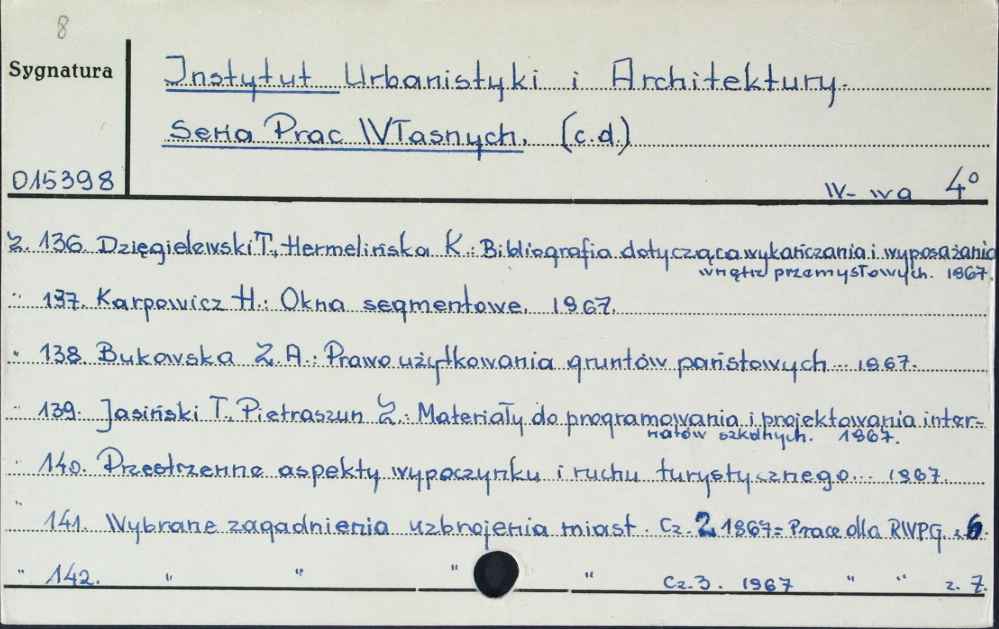 8
Sygnatura
Instytut Urbanistyki i Architektury.
Seria Prac Własnych. (c.d.)
015398
W-wa 4°
Z. 136. Dzięgielewski T., Hermelińska K.: Bibliografia dotycząca wykańczania i wyposażania
wnętrz przemysłowych. 1967.
" 137. Karpowicz H.: Okna segmentowe. 1967.
" 138. Bukowska Z. A.: Prawo użytkowania gruntów państowych... 1967.
" 139. Jasiński T., Pietraszun Z.: Materiały do programowania i projektowania inter-
natów szkolnych. 1967.
" 140. Przestrzenne aspekty wypoczynku i ruchu turystycznego... 1967.
" 141. Wybrane zagadnienia uzbrojenia miast. Cz. 2 1967 = Prace dla RWPG. z. 6.
" 142. " " " " Cz. 3. 1967 " " z. 7.